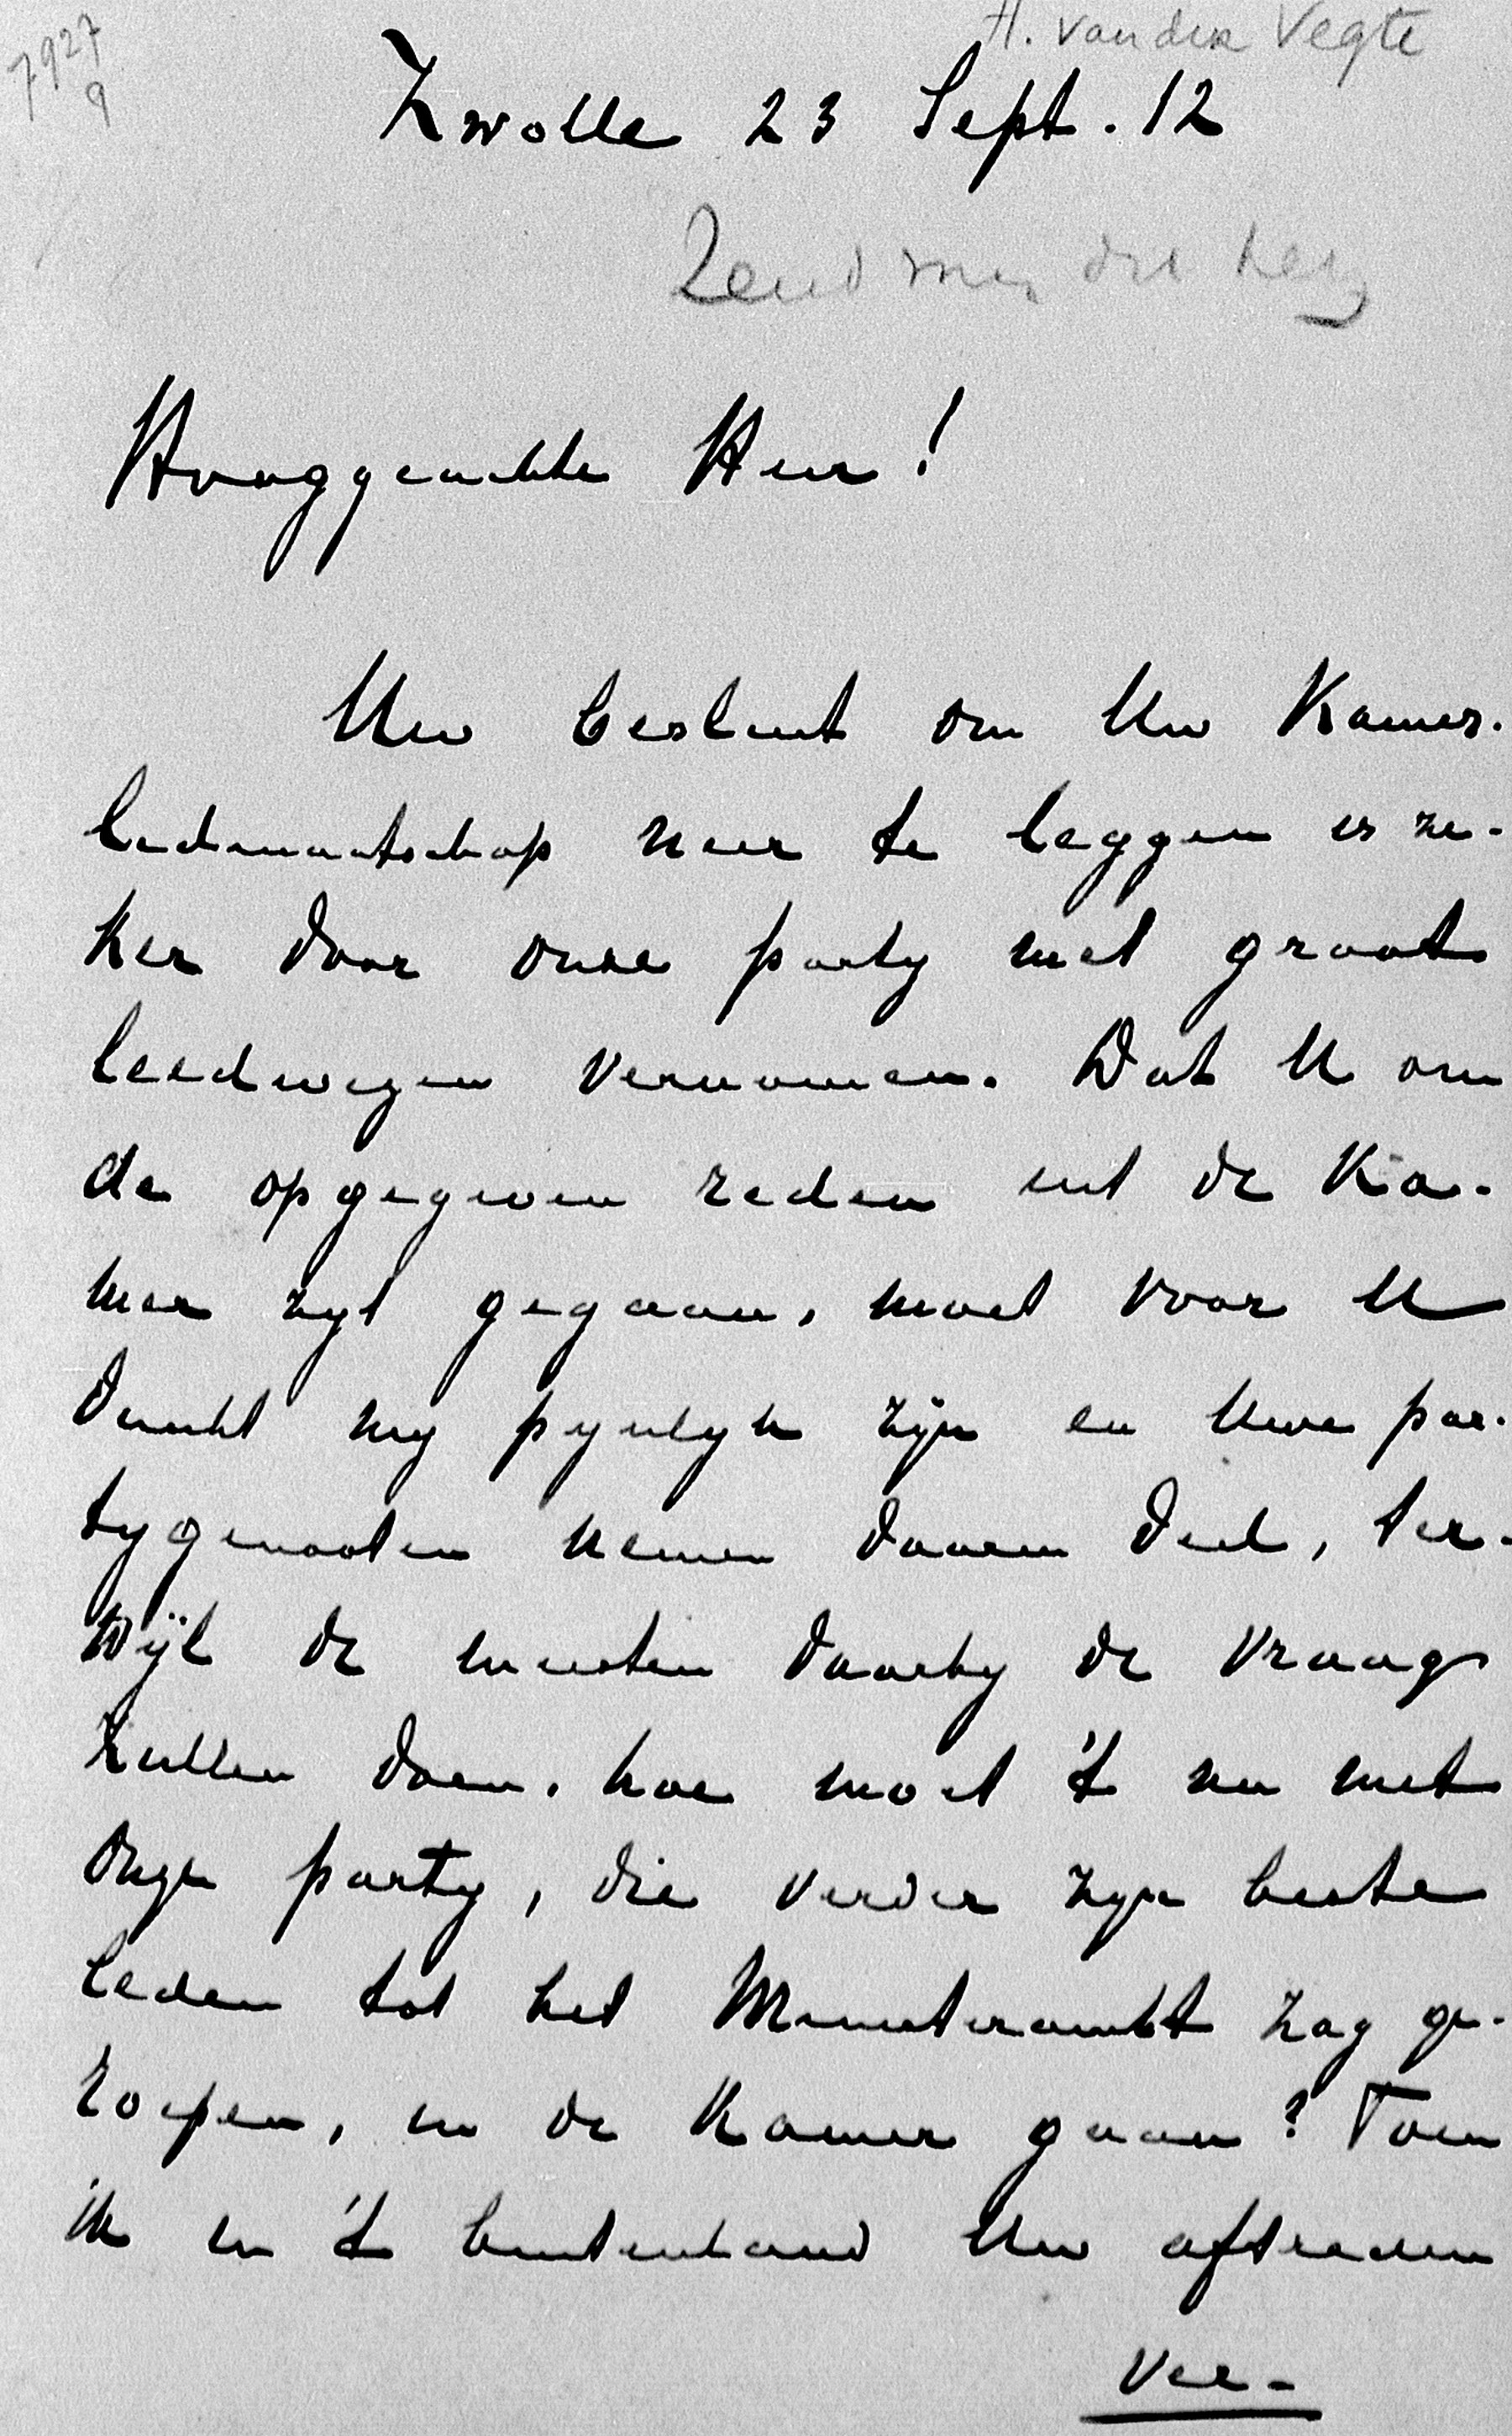 7927
9
H. van der Vegte
Zwolle 23 Sept. 12
Zend mij dit
Hooggeachte Heer!
Uw besluit om Uw Kamer-
lidmaatschap neer te leggen is ze-
ker door onze party met groot
leedwezen vernomen. Dat U om
de opgegeven reden uit de Ka-
mer zyt gegaan, moet voor U
dunkt my pynlyk zijn en Uwe par-
tygenooten nemen daarin deel, ter-
wijl de meesten daarby de vraag
zullen doen, hoe moet 't nu met
onze party, die verder zyn beste
leden tot het Ministerambt zag ge-
roepen, in de Kamer gaan? Toen
ik in 't buitenland Uw aftreden
ver-